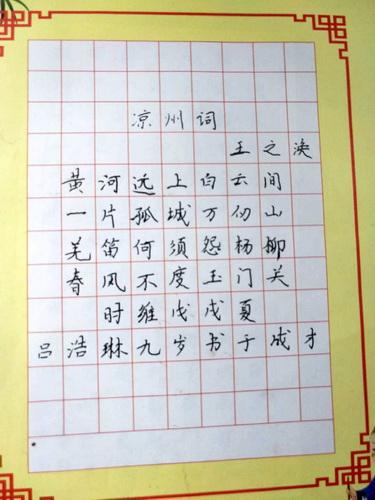 凉州词
王之涣
黄河远上白云间
一片孤城万仞山
羌笛何须怨杨柳
春风不度玉门关
时维戊戌夏
吕浩琳九岁书于成才